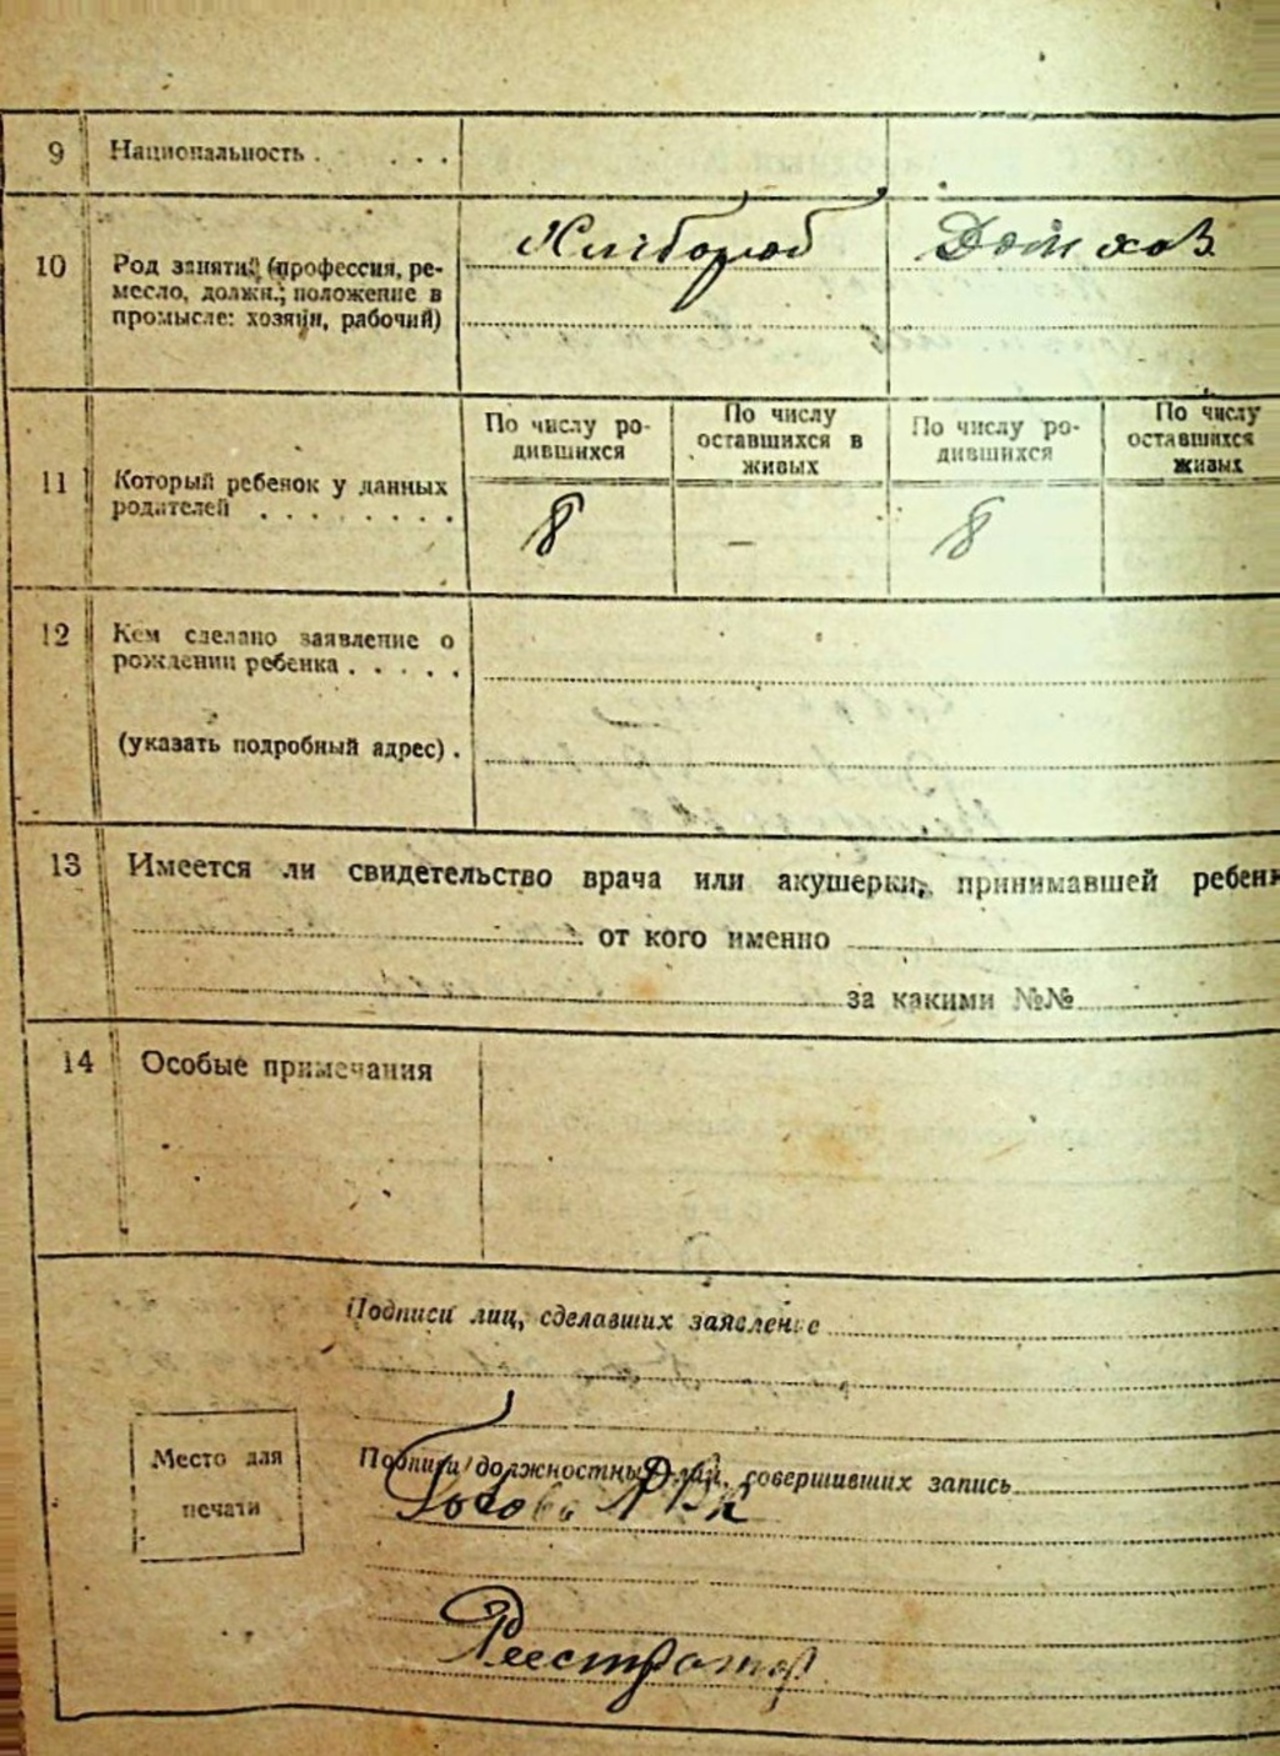 9 Национальность . . . .
Хлібороб Дом хоз
10 Род занятий (профессия, ре-
месло, должн.; положение в
промысле: хозяин, рабочий)
По числу ро-
дившихся
По числу
оставшихся в
живых
По числу ро-
дившихся
По числу
оставшихся
живых
11 Который ребенок у данных
родителей . . . . . . . .
8 — 8
12 Кем сделано заявление о
рождении ребенка . . . . .
(указать подробный адрес) .
13 Имеется ли свидетельство врача или акушерки, принимавшей
от кого именно
за какими №№
14 Особые примечания
Подписи лиц, сделавших заявление
Место для
печати
Подписи должностных лиц, совершивших запись
Голова
Реестратор